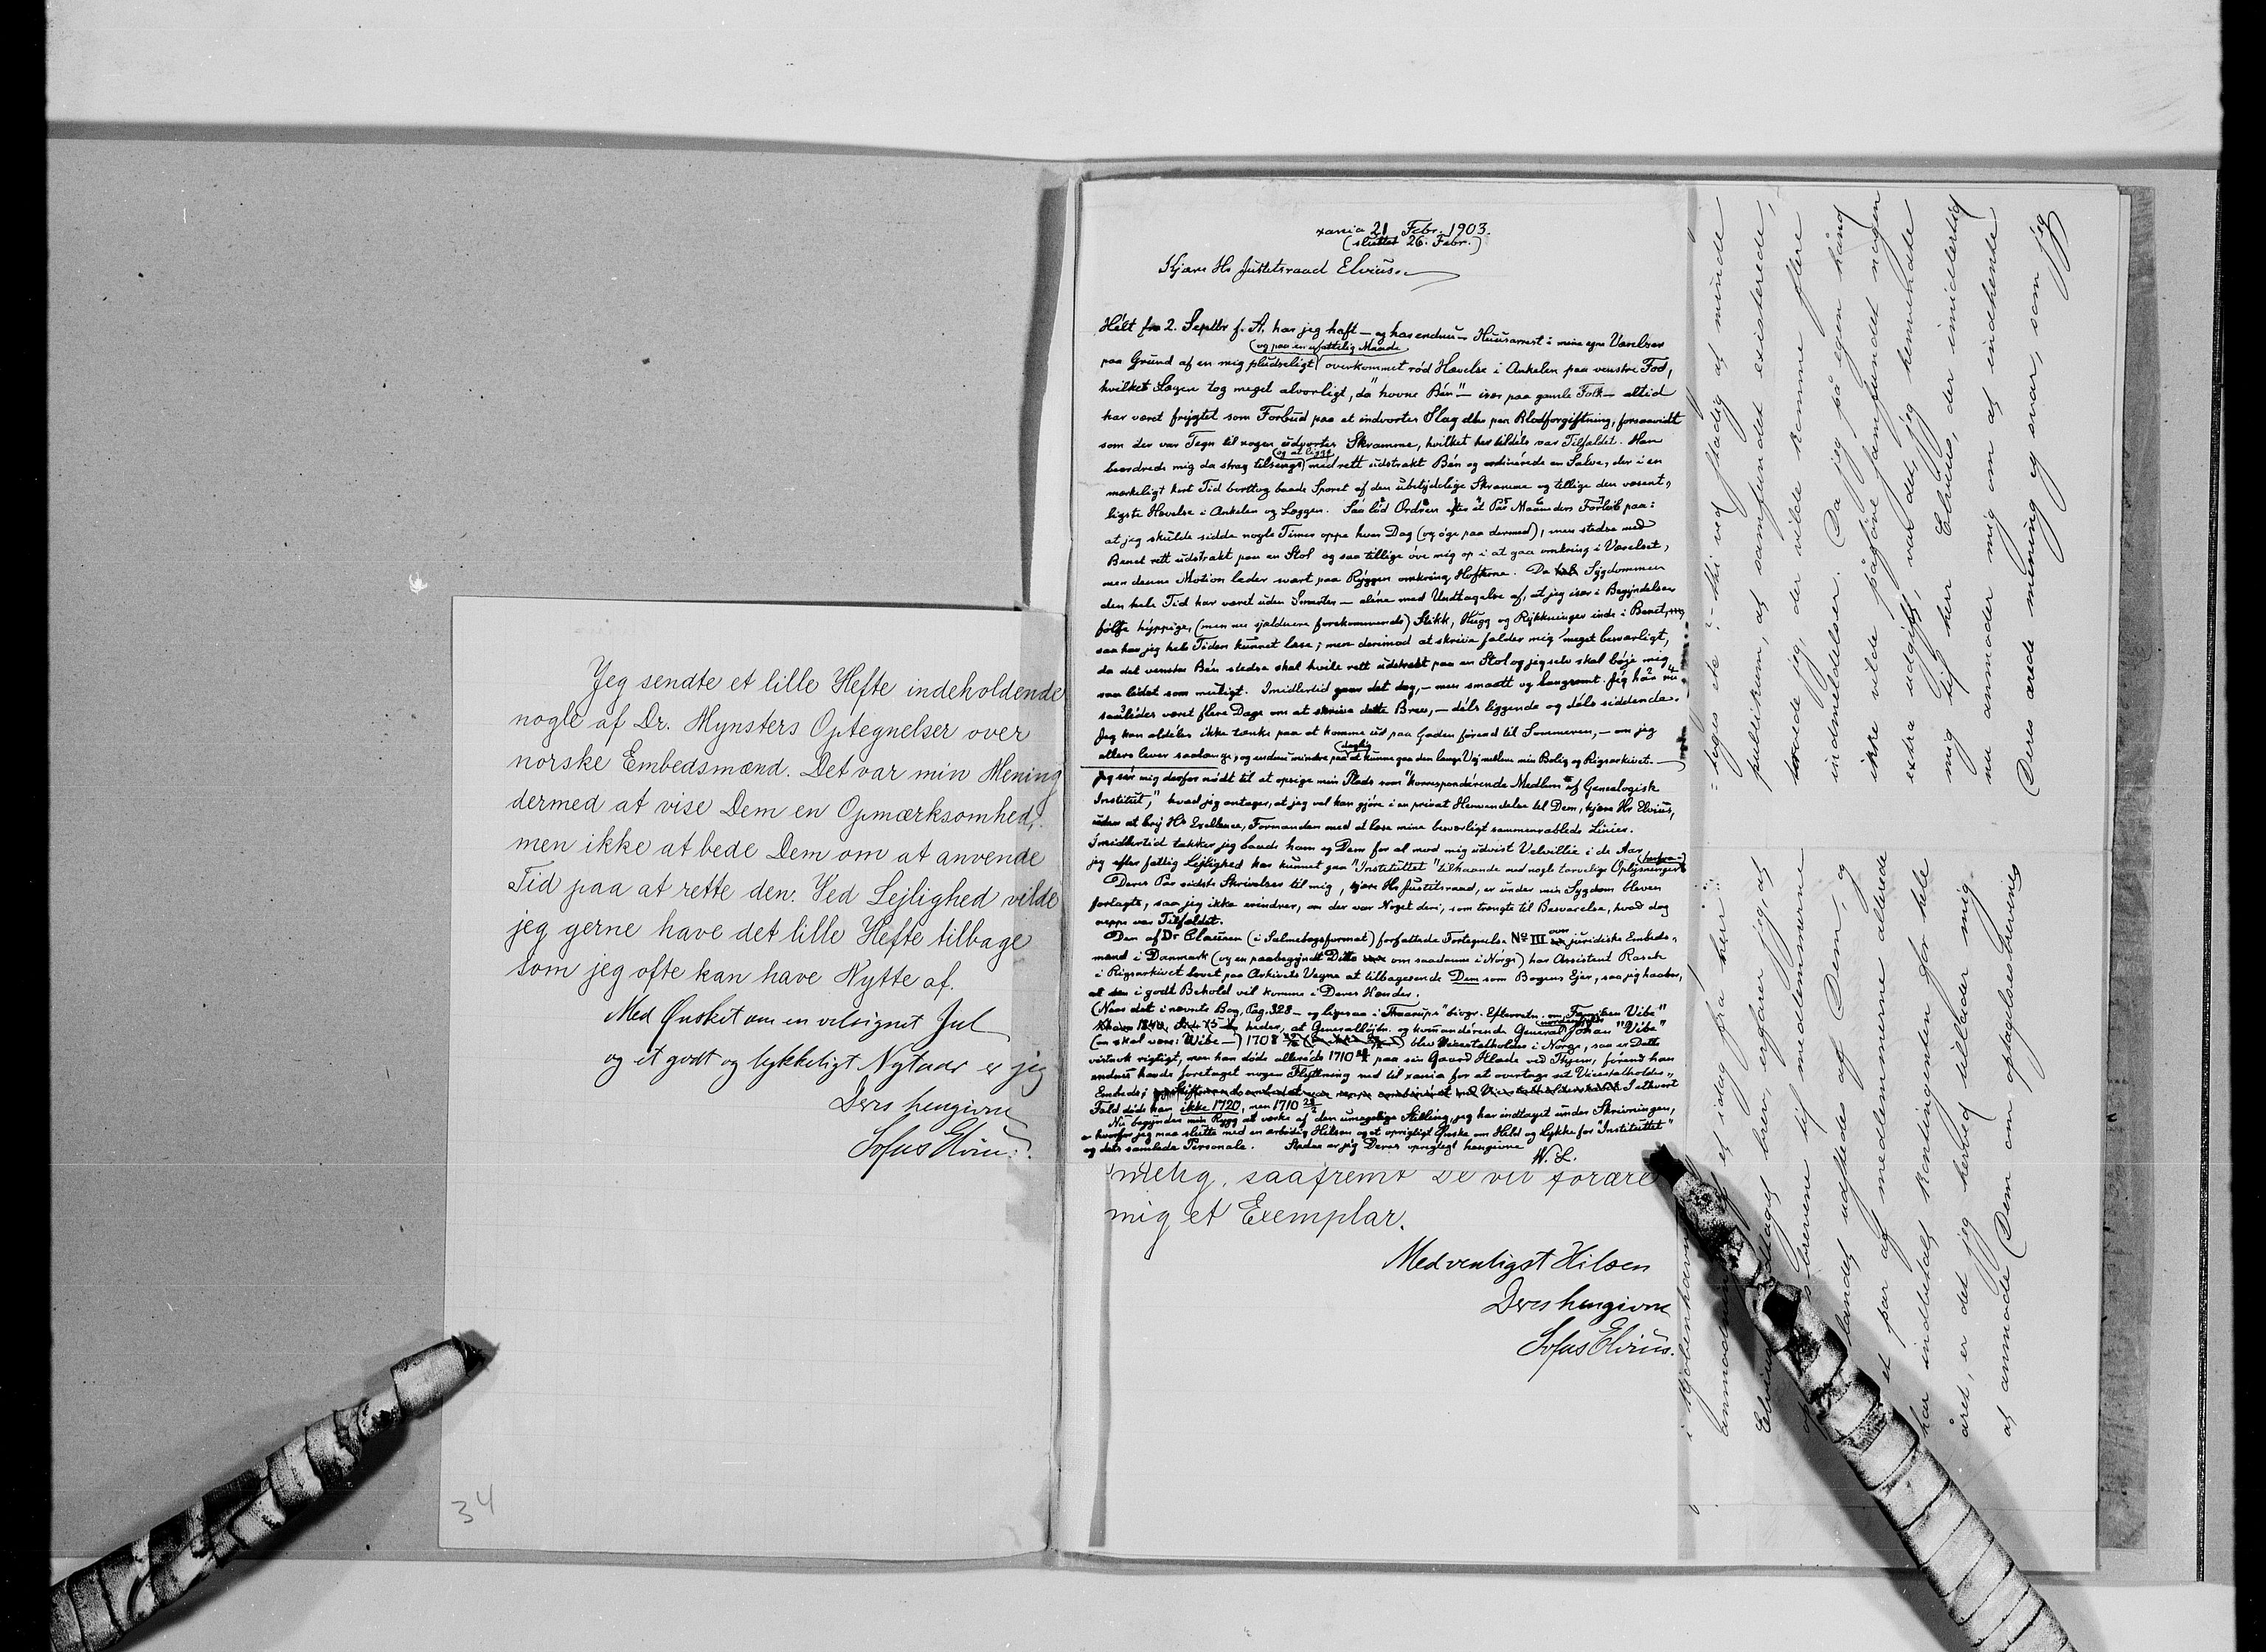 Jeg sendte et lille Hefte indeholdende
nogle af Dr. Mynsters Optegnelser over
norske Embedsmænd. Det var min Mening
dermed at vise Dem en Opmærksomhed,
men ikke at bede Dem om at anvende
Tid paa at rette den. Ved Lejlighed vilde
jeg gerne have det lille Hefte tilbage
som jeg ofte kan have Nytte af.
Med Ønsket om en velsignet Jul
og et godt og lykkeligt Nytaar er jeg
Deres hengivne
Sofus Elvius.
34
xania 21 Febr. 1903.
(sluttet 26. Febr.)
Kjære Hr Justitsraad Elvius.
Hélt fra 2. Septbr f. A. har jeg haft — og har endnu — Huusarrest i mine egne Værelser
(og paa en ufattelig Maade)
paa Grund af en mig pludseligt overkommet rød Hævelse i Ankelen paa venstre Fod,
hvilket Lægen tog meget alvorligt, da "hovne Bén" — især paa gamle Folk — altid
har været frygtet som Forbud paa et indvortes Slag eller paa Blodforgiftning, forsaavidt
som der var Tegn til nogen udvortes Skramme, hvilket her tildéls var Tilfældet. Han
(og at ligge)
beordrede mig da strax tilsengs med rett udstrakt Bén og ordinérede en Salve, der i en
mærkeligt kort Tid borttog baade Sporet af den ubetydelige Skramme og tillige den væsent-
ligste Hævelse i Ankelen og Læggen. Saa lød Ordren efter et Par Maaneders Forløb paa:
at jeg skulde sidde nogle Timer oppe hver Dag (og øge paa dermed), men stedse med
Benet rett udstrakt paa en Stol og saa tillige øve mig op i at gaa omkring i Værelset,
men denne Motion lader svært paa Ryggen omkring Hofterne. Da Sygdommen
den hele Tid har været uden Smerter — aléne med Undtagelse af, at jeg især i Begyndelsen
følte hyppige, (men nu sjældnere forekommende) Stikk, Hugg og Rykkninger inde i Benet,
saa har jeg hele Tiden kunnet læse; men derimod at skrive falder mig meget besværligt,
da det venstre Bén stedse skal hvile rett udstrakt paa en Stol og jeg selv skal bøje mig
saa lidet som muligt. Imidlertid gaar det dog, — men smaatt og langsomt. Jeg har nu
saaledes været flere Dage om at skrive dette Brev, — déls liggende og déls siddende.
Jeg kan aldeles ikke tænke paa at komme ud paa Gaden førend til Sommeren, — om jeg
(daglig)
ellers lever saalænge, og endnu mindre paa at kunne gaa den lange Vej mellem min Bolig og Rigsarkivet. —
Jeg sér mig derfor nødt til at opsige min Plads som "korresponderende Medlem af Genealogisk
Institut," hvad jeg antager, at jeg vel kan gjøre i en privat Henvendelse til Dem, kjære Hr Elvius,
uden at bry Hs Exellence, Formanden med at læse mine besværligt sammenrablede Linier.
Imidlertid takker jeg baade ham og Dem for al mod mig udvist Velvillie i de Aar,
jeg efter fattig Lejlighed har kunnet gaa "Instituttet" tilhaande med nogle tarvelige Oplysninger
Deres Par sidste Skrivelser til mig, kjære Hr Justitsraad, er under min Sygdom bleven
forlagte, saa jeg ikke erindrer, om der var Noget deri, som trængte til Besvarelse, hvad dog
neppe var Tilfældet.
Den af Dr Clausen (i Salmebogsformat) forfattede Fortegnelse No III over juridiske Embeds-
mænd i Danmark (og en paabegyndt Ditto om saadanne i Norge) har Assistent Rasch
i Rigsarkivet lovet paa Arkivets Vegne at tilbagesende Dem som Bogens Ejer, saa jeg haaber,
at den i godt Behold vil komme i Deres Hænder.
(Naar det i nævnte Bog, Pag. 328 — og ligesaa i Thaarups "biogr. Efterretn. om Familien Vibe"
heder, at Generalløjtn. og kommandérende General Johan "Vibe"
(nordenfjelds)
(en skal være: Wibe —) 1708 blev Vicestatholder i Norge, saa er Dette
vistnok rigtigt, men han døde alleréde 1710 paa sin Gaard Hlade ved Thjem, førend han
endnu havde foretaget nogen Flyttning ned til xania for at overtage sit Vicestatholder-
Embede; I ethvert
Fald døde han ikke 1720, men 1710
Nu begynder min Rygg at værke af den umagelige Stilling, jeg har indtaget under Skrivningen,
hvorfor jeg maa slutte med en ærbødig Hilsen og et oprigtigt Ønske om Held og Lykke for "Instituttet"
og dets samlede Personale. Stedse er jeg Deres oprigtigt hengivne
W. L.
saafremt De vil forære
mig et Exemplar.
Med venligst Hilsen
Deres hengivne
Sofus Elvius.
i Kjøbenhavn
idag fra herr
brev, erfarer jeg, at
brevene til medlemmerne
landet udstedes af Dem, og
et par af medlemmerne allerede
har indbetalt kontingenten for hele
året, er det jeg herved tillader mig
at anmode Dem om oplysning
toges ete ? — thi ved stadig at minde
publikum, at samfundet existerede,
troede jeg, der vilde komme flere
indmeldelser. Da jeg på egen hånd
ikke vilde pågøre samfundet nogen
extra udgift, var det, jeg henvendte
mig til herr Elvius, der imidlertid
nu anmoder mig om at indhente
Deres ærede mening og svar, som jeg